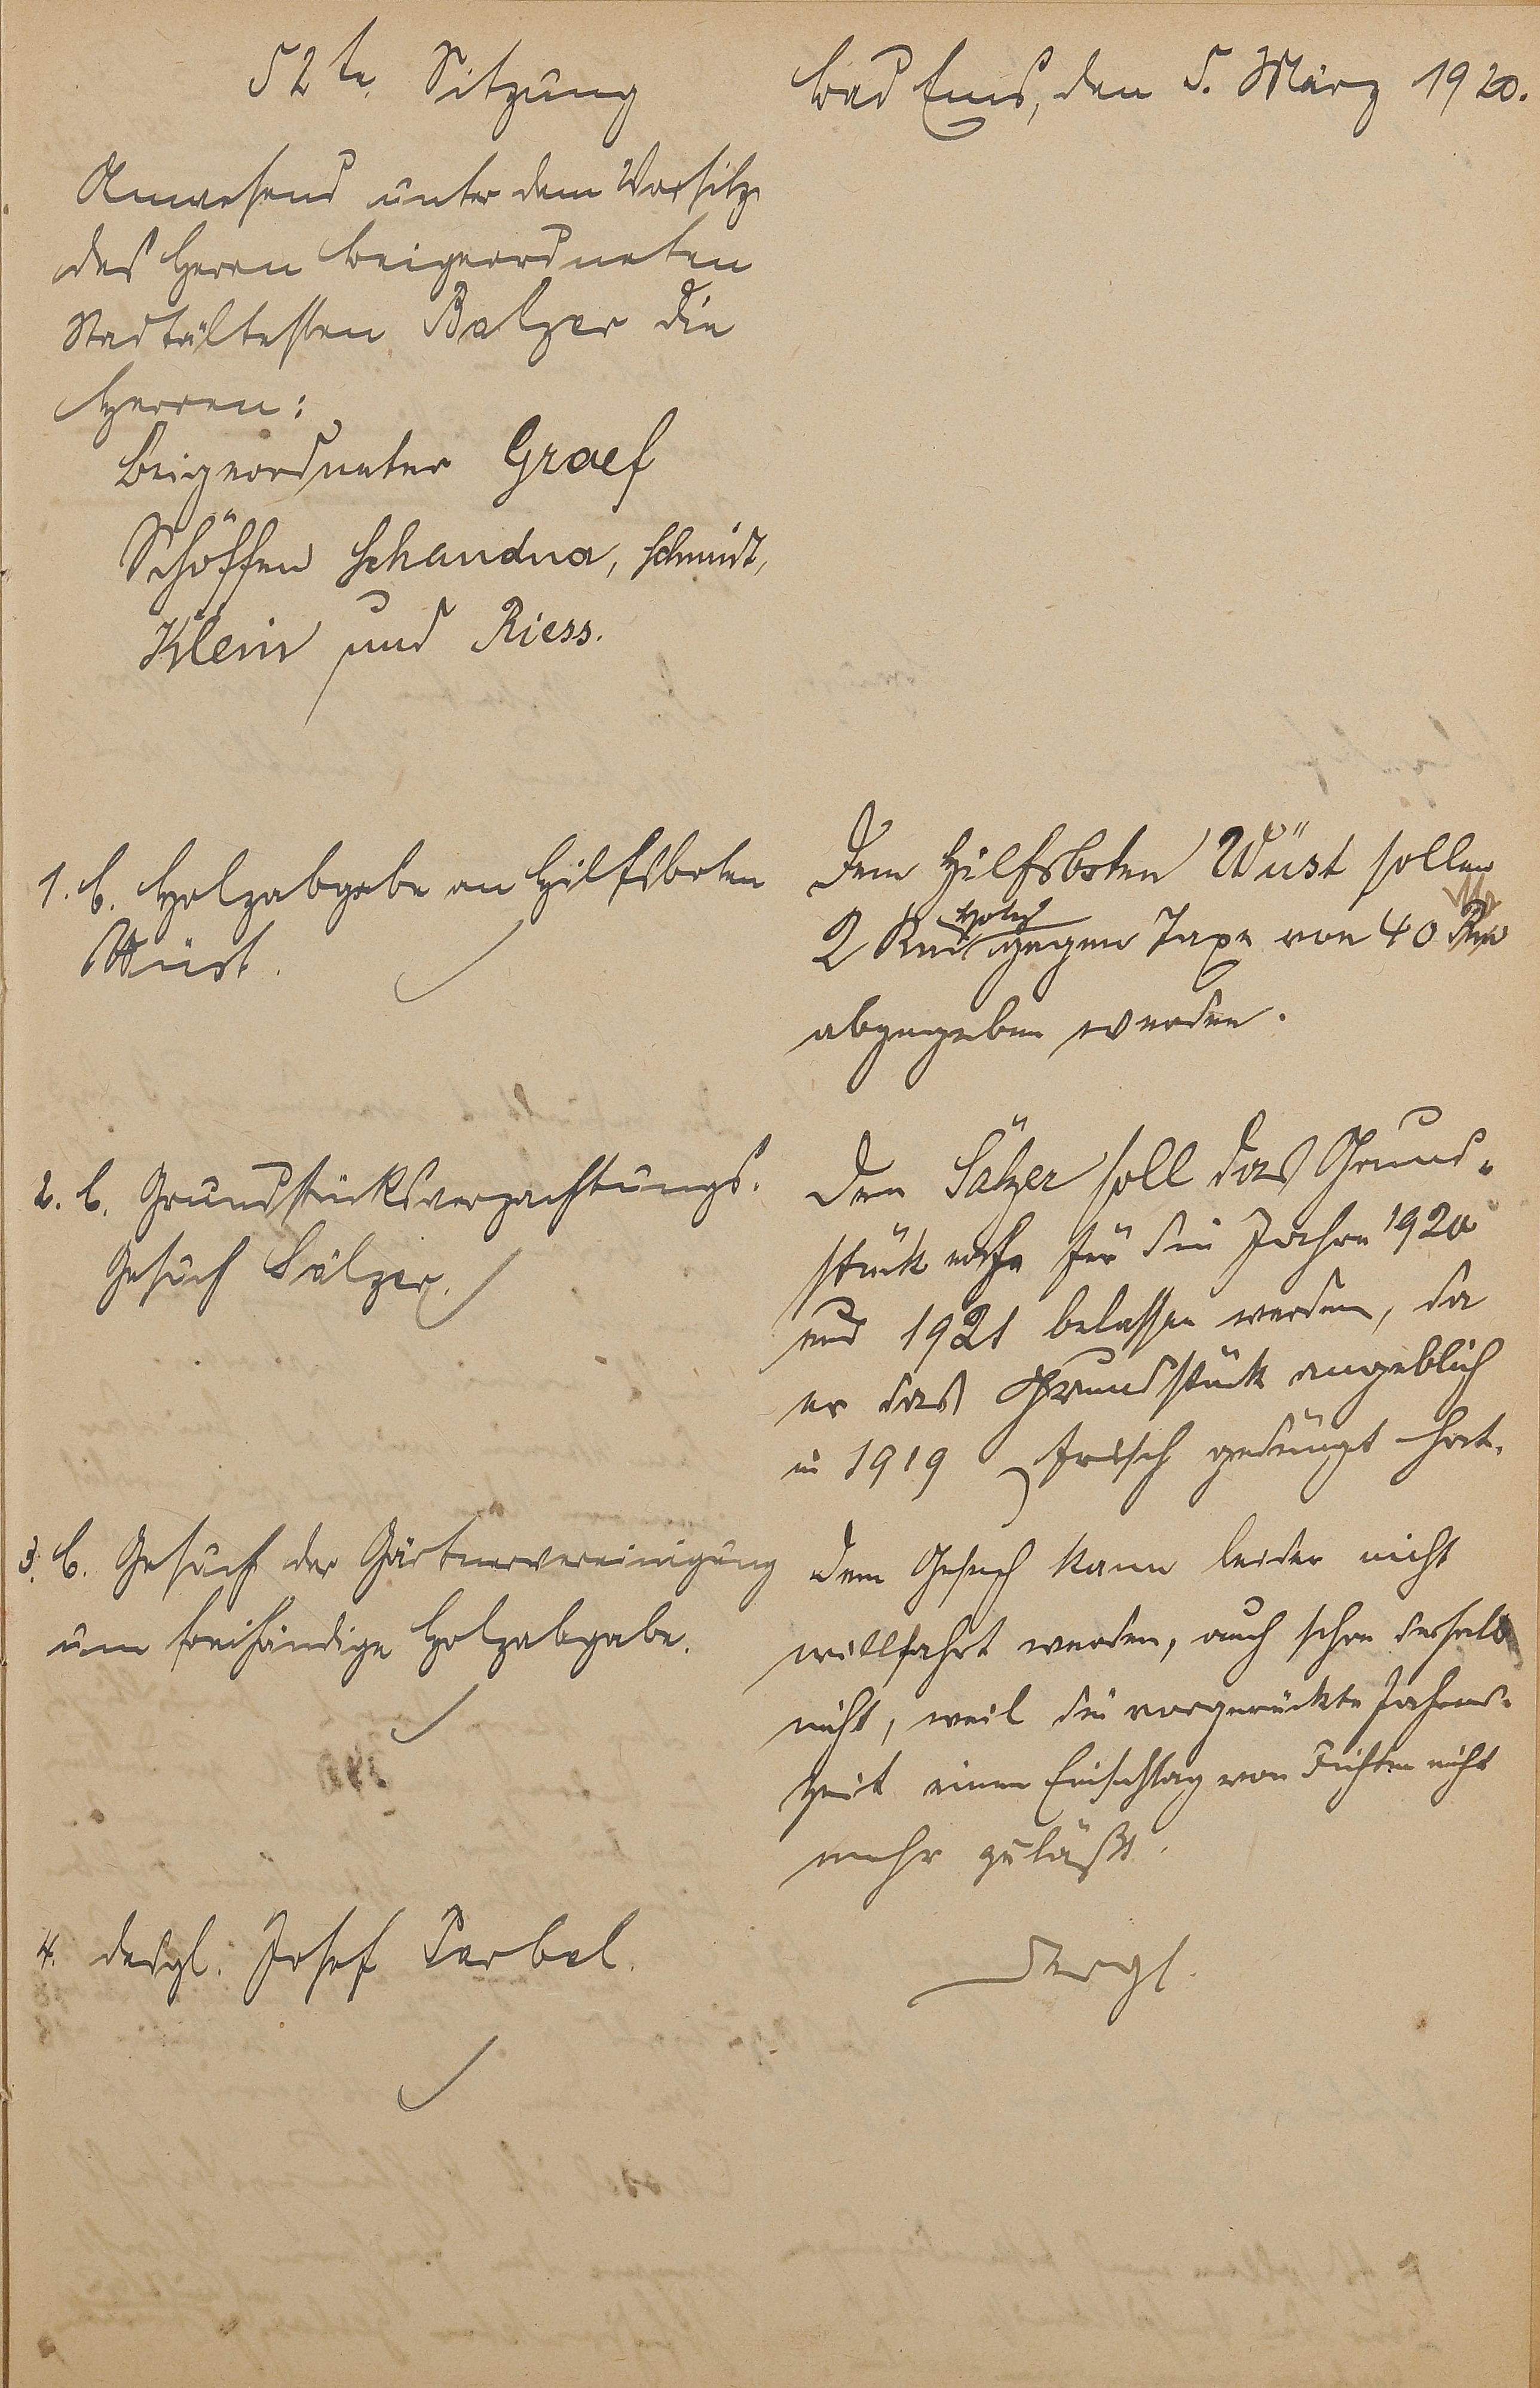 52te. Sitzung
Bad Ems, den 5. März 1920.
Anwesend unter dem Vorsitz
des Herrn Beigeordneten
Stadtältesten Balzer die
Herren:
Beigeordneter Graef
Schöffen Schandua, Schmidt,
Klein und Riess.
1. b. Holzabgabe an Hilfsboten
Wüst.
Dem Hilfsboten Wüst sollen
2 Rm Holz gegen Taxe von 40 M
abgegeben werden.
2. b. Grundstücksverpachtungs-
Gesuch Sälzer.
Dem Sälzer soll das Grund-
stück noch für die Jahre 1920
und 1921 belassen werden, da
er das Grundstück angeblich
in 1919 frisch gedüngt hat.
3. b. Gesuch der Gärtnervereinigung
um freihändige Holzabgabe.
Dem Gesuch kann leider nicht
willfahrt werden, auch schon deshalb
nicht, weil die vorgerückte Jahres-
zeit einen Einschlag von Fichten nicht
mehr zuläßt.
4. desgl. Josef Ferbel.
Dergl.